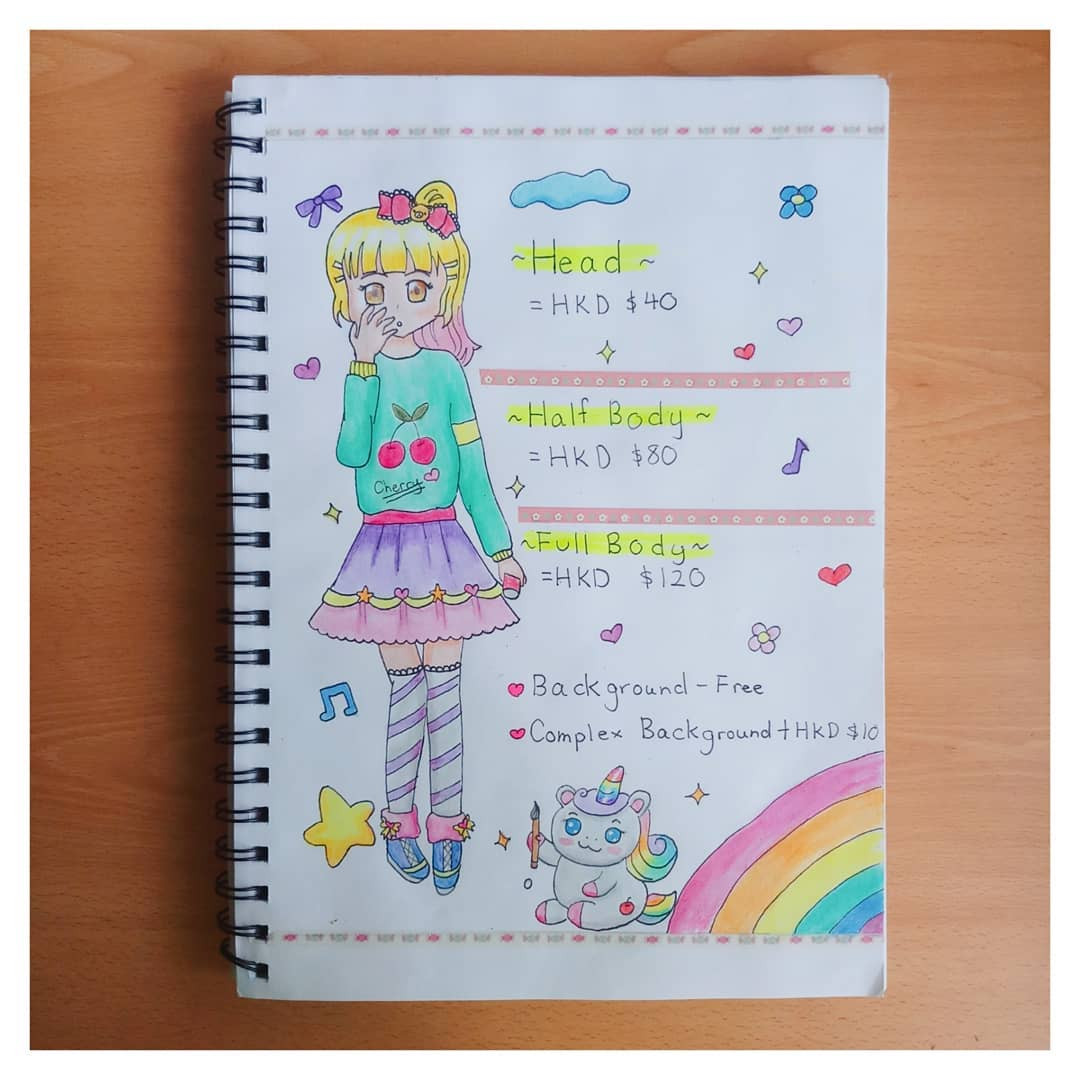 ~Head~
= HKD $40
~Half Body~
= HKD $80
~Full Body~
=HKD $120
Cherry
Background - Free
Complex Background + HKD $10